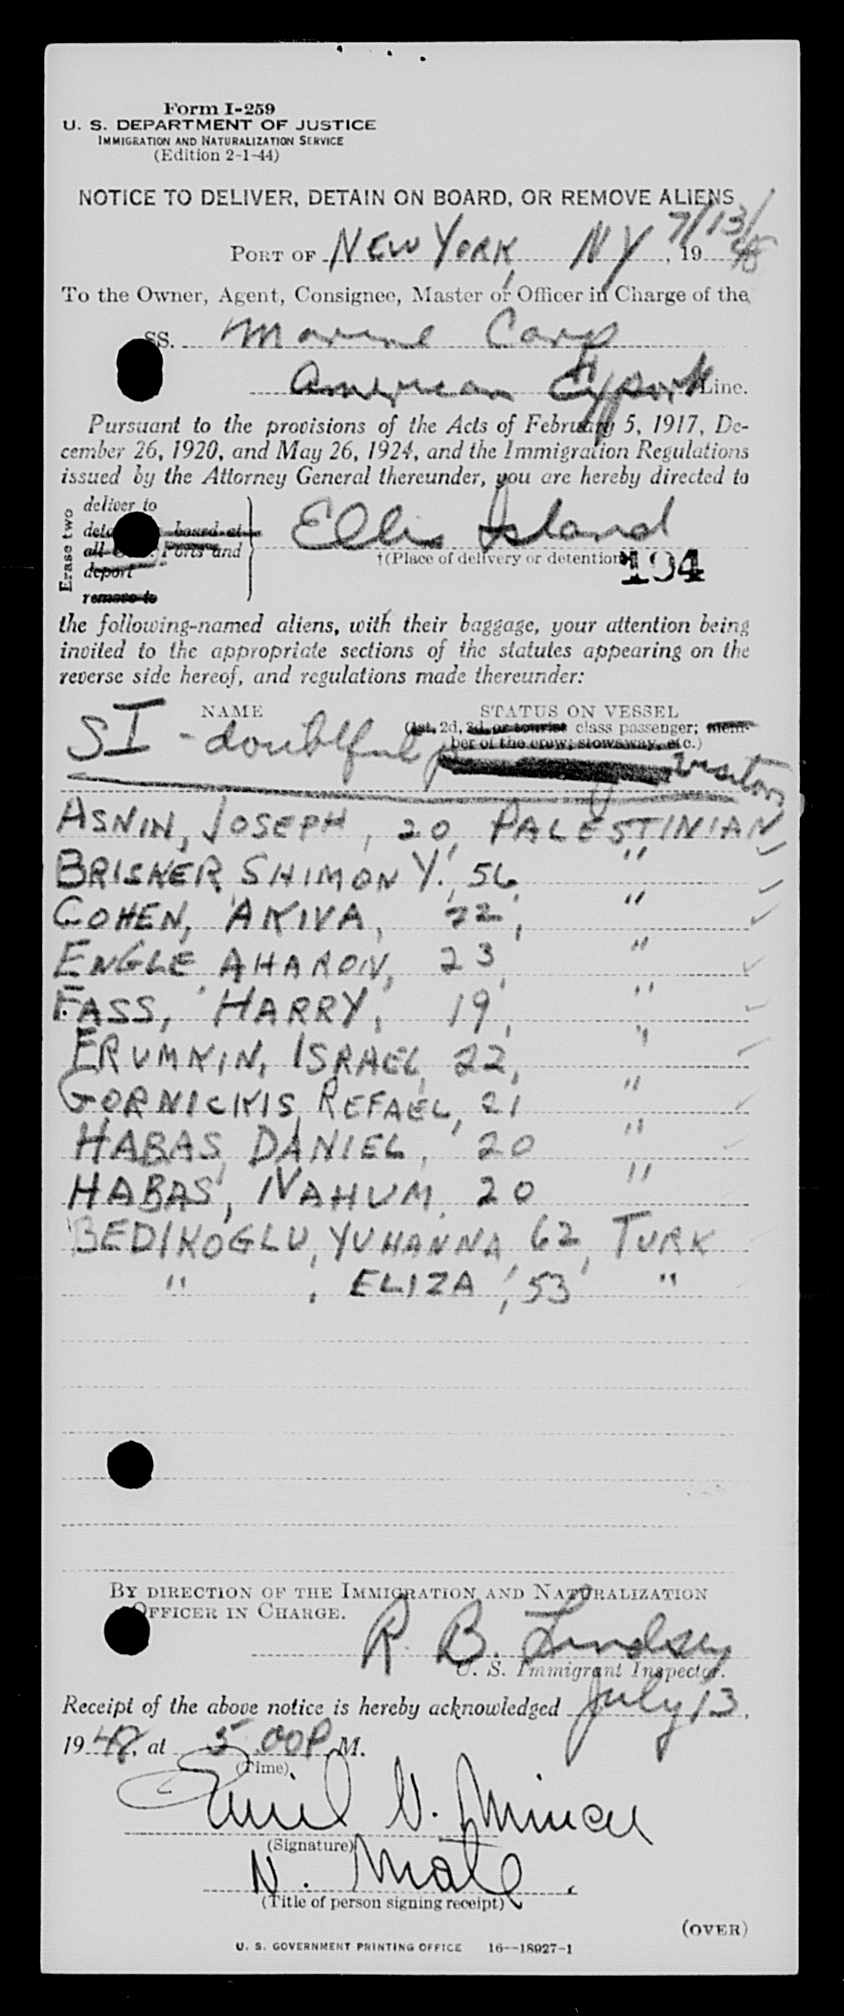 Form I-259
U. S. DEPARTMENT OF JUSTICE
IMMIGRATION AND NATURALIZATION SERVICE
(Edition 2-1-44)
NOTICE TO DELIVER, DETAIN ON BOARD, OR REMOVE ALIENS
PORT OF NEW YORK, NY 7/13/, 1948
To the Owner, Agent, Consignee, Master or Officer in Charge of the
SS. Marine Carp
American Export Line.
Pursuant to the provisions of the Acts of February 5, 1917, De-
cember 26, 1920, and May 26, 1924, and the Immigration Regulations
issued by the Attorney General thereunder, you are hereby directed to
Erase two
deliver to
board at
Ports and
deport
remove to
Ellis Island
†(Place of delivery or detention)
194
the following-named aliens, with their baggage, your attention being
invited to the appropriate sections of the statutes appearing on the
reverse side hereof, and regulations made thereunder:
NAME STATUS ON VESSEL
(1st, 2d, 3d, or tourist class passenger; mem-
ber of the crew; stowaway, etc.)
SI - doubtful visitors
ASNIN, JOSEPH, 20, PALESTINIAN
BRISKER, SHIMON Y., 56 "
COHEN, AKIVA, 22, "
ENGLE AHARON, 23, "
FASS, HARRY, 19, "
FRUMKIN, ISRAEL, 22, "
GORNICKIS, REFAEL, 21 "
HABAS, DANIEL, 20 "
HABAS, NAHUM, 20 "
BEDIKOGLU, YUHANNA, 62, TURK
" , ELIZA, 53 "
BY DIRECTION OF THE IMMIGRATION AND NATURALIZATION
OFFICER IN CHARGE.
R. B. Lindsey
U. S. Immigrant Inspector.
Receipt of the above notice is hereby acknowledged July 13,
1948, at 5 00P M.
(Time)
Emil V.
(Signature)
N. Mate
(Title of person signing receipt)
(OVER)
U. S. GOVERNMENT PRINTING OFFICE 16—18927-1